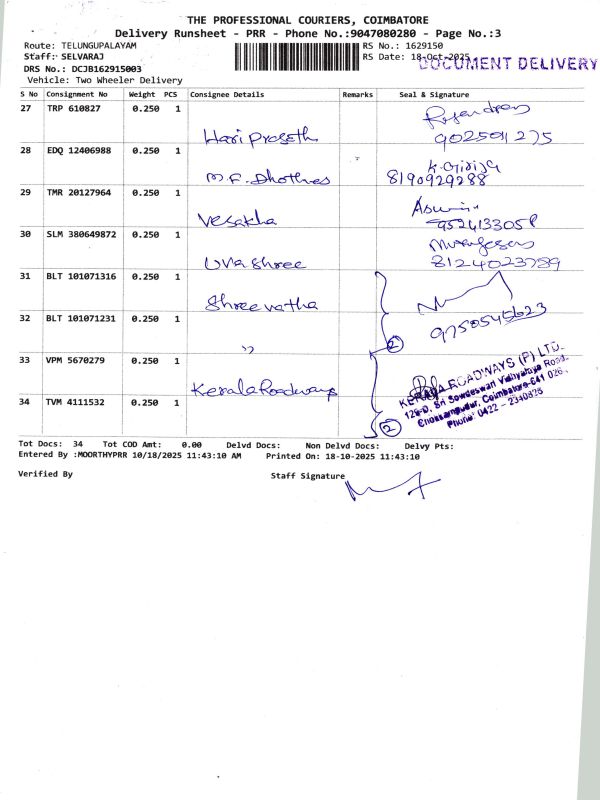 THE PROFESSIONAL COURIERS, COIMBATORE
Delivery Runsheet - PRR - Phone No.:9047080280 - Page No.:3
Route: TELUNGUPALAYAM RS No.: 1629150
Staff: SELVARAJ RS Date: 18-Oct-2025
DOCUMENT DELIVERY
DRS No.: DCJB162915003
Vehicle: Two Wheeler Delivery
S No Consignment No Weight PCS Consignee Details Remarks Seal & Signature
27 TRP 610827 0.250 1 Rajendran
Hari Prasath 9025011275
28 EDQ 12406988 0.250 1 K. Girija
M.F. Dhothies 8190929288
29 TMR 20127964 0.250 1 Aswin
Vesakha
30 SLM 380649872 0.250 1 Murugesan
Uva Shree 8124023789
31 BLT 101071316 0.250 1
Shree vatha
32 BLT 101071231 0.250 1 9750545623
" 2
33 VPM 5670279 0.250 1
Kerala Roadways
KERALA ROADWAYS (P) LTD.
129-D, Sri Sowdeswari Vidhyalaya Road,
34 TVM 4111532 0.250 1
Coimbatore-641 026.
Phone: 0422 - 2340825
2
Tot Docs: 34 Tot COD Amt: 0.00 Delvd Docs: Non Delvd Docs: Delvy Pts:
Entered By :MOORTHYPRR 10/18/2025 11:43:10 AM Printed On: 18-10-2025 11:43:10
Verified By Staff Signature